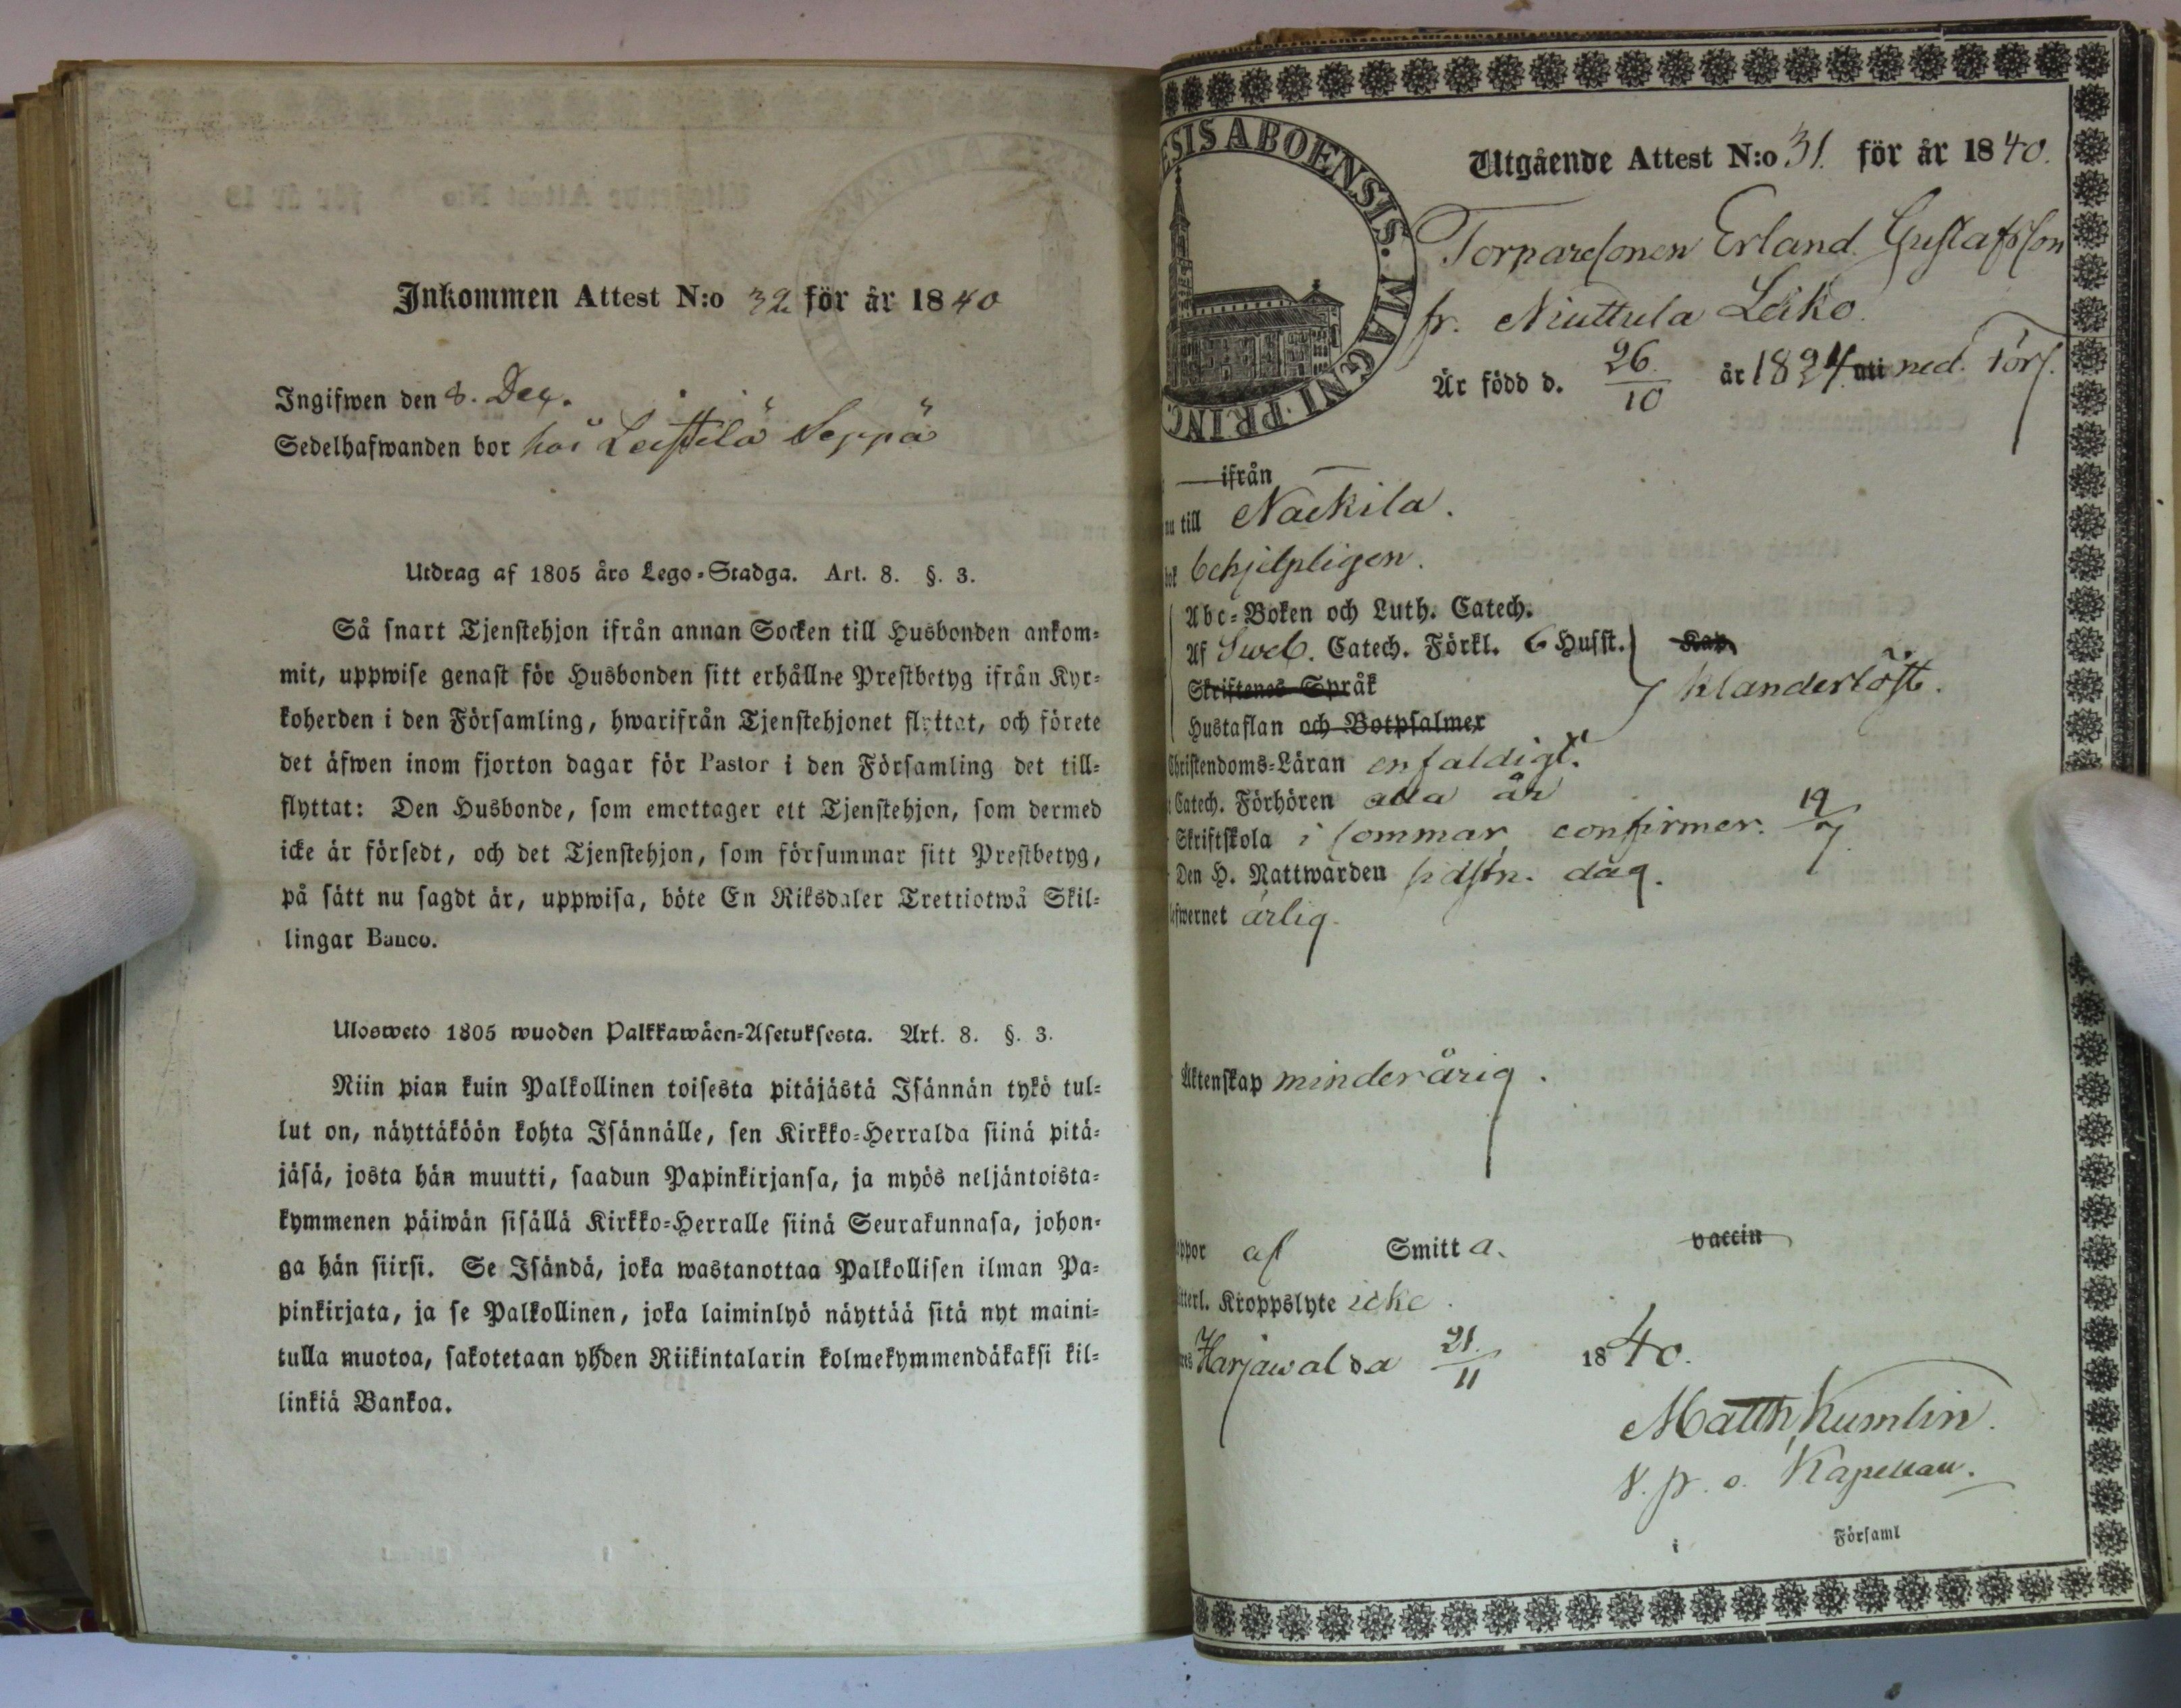 Inkommen Attest N:o 32 för år 1840
Ingifwen den 8. Dec.
Sedelhafwanden bor hos Leistilä Seppä
Utdrag af 1805 års Lego-Stadga. Art. 8. §. 3.
Så snart Tjenstehjon ifrån annan Socken till Husbonden ankom-
mit, uppwise genast för Husbonden sitt erhållne Prestbetyg ifrån Kyr-
koherden i den Församling, hwarifrån Tjenstehjonet flyttat, och förete
det äfwen inom fjorton dagar för Pastor i den Församling det till-
flyttat: Den Husbonde, som emottager ett Tjenstehjon, som dermed
icke är försedt, och det Tjenstehjon, som försummar sitt Prestbetyg,
på sätt nu sagdt är, uppwisa, böte En Riksdaler Trettiotwå Skil-
lingar Banco.
Ulosweto 1805 wuoden Palkkawäen-Asetuksesta. Art. 8. §. 3.
Niin pian kuin Palkollinen toisesta pitäjästä Isännän tykö tul-
lut on, näyttäköön kohta Isännälle, sen Kirkko-Herralda siinä pitä-
jäsä, josta hän muutti, saadun Papinkirjansa, ja myös neljäntoista-
kymmenen päiwän sisällä Kirkko-Herralle siinä Seurakunnasa, johon-
ga hän siirsi. Se Isändä, joka wastanottaa Palkollisen ilman Pa-
pinkirjata, ja se Palkollinen, joka laiminlyö näyttää sitä nyt maini-
tulla muotoa, sakotetaan yhden Riikintalarin kolmekymmendäkaksi kil-
linkiä Bankoa.
ESIS ABOENSIS. MAGNI PRINC
Utgående Attest N:o 31. för år 1840.
Torparesonen Erland Gustafsson
fr. Niuttula Leiko.
Är född d. 26/10 år 1824. uti ned. Förs.
ifrån
nu till Nackila.
bok behjelpligen.
Abc-Boken och Luth. Catech.
Af Sweb. Catech. Förkl. 6 Husst. Kap.
Skriftenes Språk
klanderlöst.
Hustaflan och Botpsalmer
Christendoms-Läran enfaldigt.
Catech. Förhören alla år
Skriftskola i sommar, confirmer. 19/7
Den H. Nattwarden sidstn. dag.
lefwernet ärlig.
Äktenskap minderårig.
oppor af Smitta. vaccin
itterl. Kroppslyte icke.
res Harjawalda 21/11 1840.
Matth Kumlin.
v. p. o. Kapellan.
i Församl